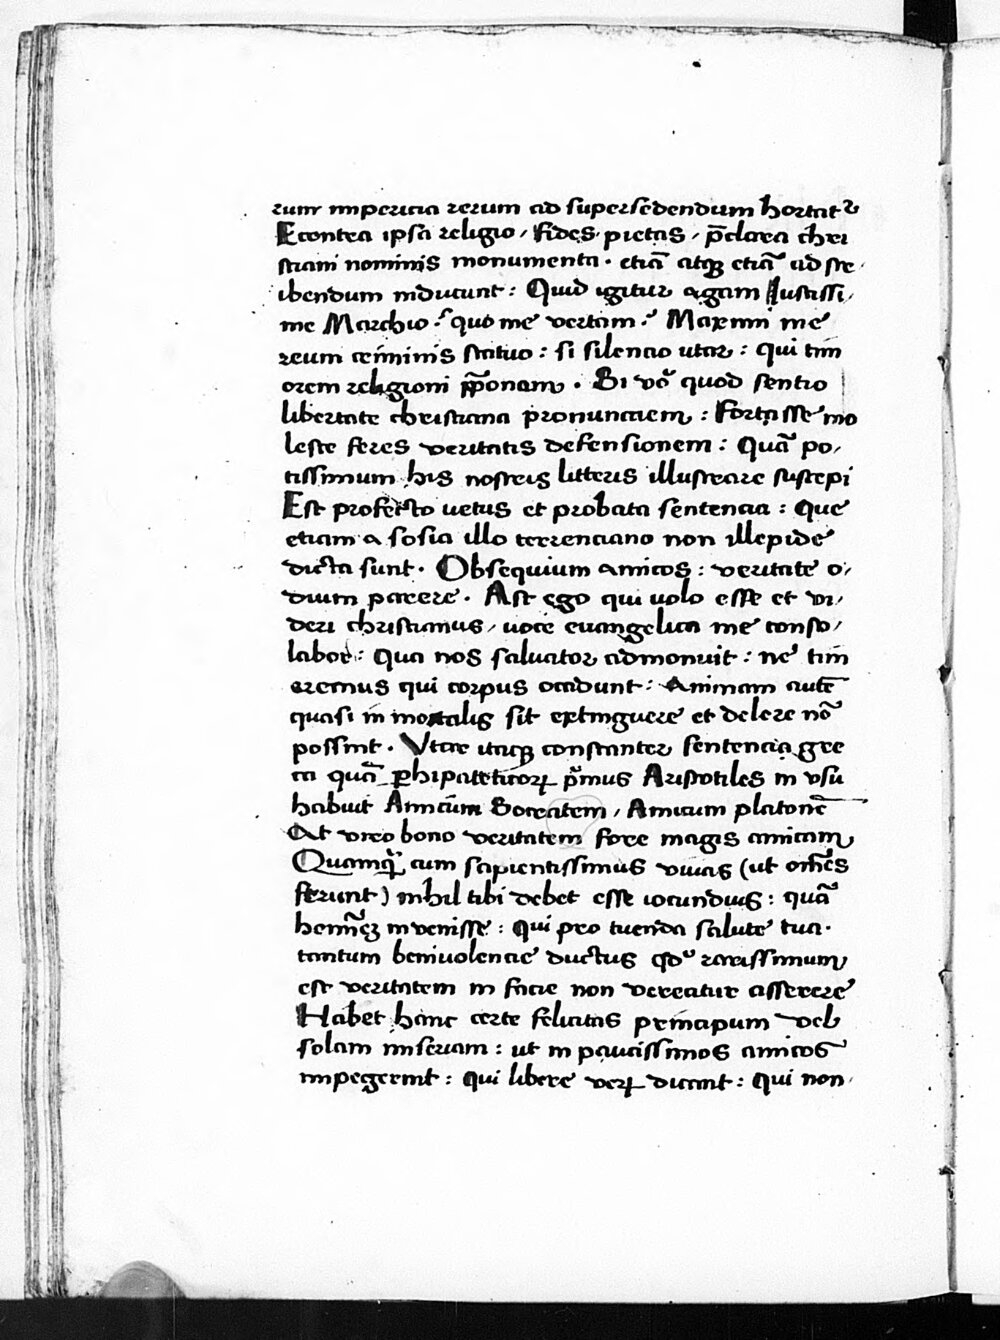 rum impericia rerum ad supersedendum hortat᷑
Econtra ipsa religio, fides, pietas, p̄clara chri
stiani nominis monumenta. etiā atqꝫ etiā ad scr,
ibendum inducunt: Quid igitur agam Iustissi,
me Marchio? quo me vertam? Maximi me
reum criminis statuo: si silencio utar: qui tim
orem religioni p̄ponam. Si vō quod sentio
libertate christiana pronunciem: Fortasse mo
leste feres veritatis defensionem: Quā po,
tissimum his nostris litteris illustrare suscepi
Est profecto vetus et probata sentencia: Que
etiam a sosia illo terrenciano non illepide
dicta sunt. Obsequium amicos: veritate o,
dium parere. Ast ego qui uolo esse et vi,
deri christianus, uoce euangelica me conso,
labor: Qua nos saluator admonuit: ne tim
eremus qui corpus occidunt: Animam autē
quasi inmortalis sit extinguere et delere nō
possint. Vtar itaqꝫ constanter sentencia gre
ca quā perhipateticoꝝ p̄mus Aristotiles in vsu
habuit Amicūm Socratem, Amicum platonē
At viro bono veritatem fore magis amicam
Quamqꝫ cum sapientissimus viuas (ut om̄es
ferunt) nihil tibi debet esse iocundius: quā
hominēs inuenisse: qui pro tuenda salute tua.
tantum beniuolencie ductus qd᷑ rarissimum
est veritatem in facie non vereatur asserere
Habet hanc certe felicitas principum vel
solam miseriam: ut in paucissimos amicos
impegerint: qui libere veꝝ dicant: qui non,